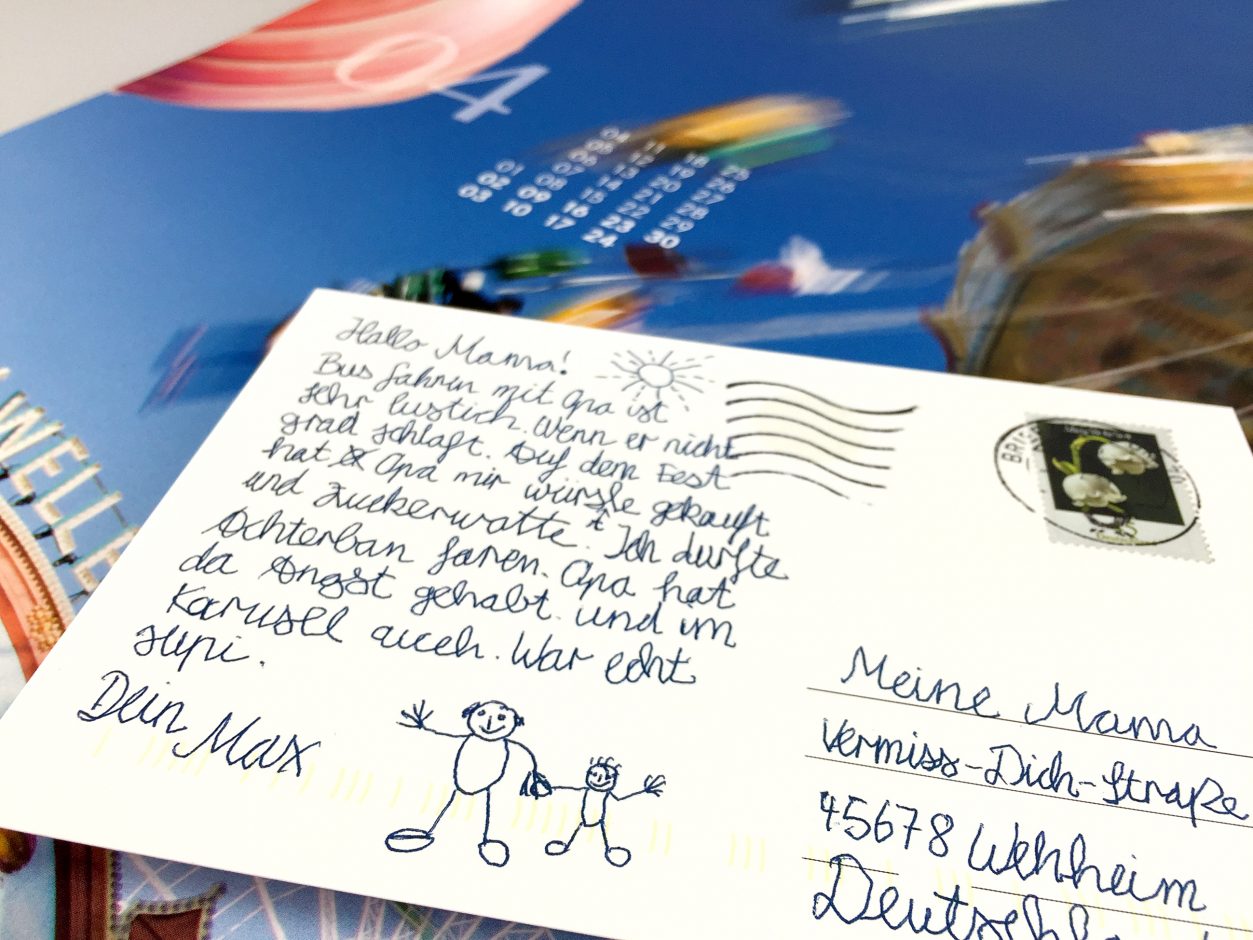 04
01
02
03
08
09
10
16
17
23
24
28
29
30
WELLE
Hallo Mama!
Bus fahrn mit Opa ist
sehr lustich. Wenn er nicht
grad schlaft. Auf dem Fest
hat Opa mir würsle gekauft
und Zuckerwatte. Ich durfte
Achterban faren. Opa hat
da Angst gehabt. und im
Karusell auch. War echt
supi.
Dein Max
BRI
Meine Mama
Vermiss-Dich-Straße
45678 Wehheim
Deutschl